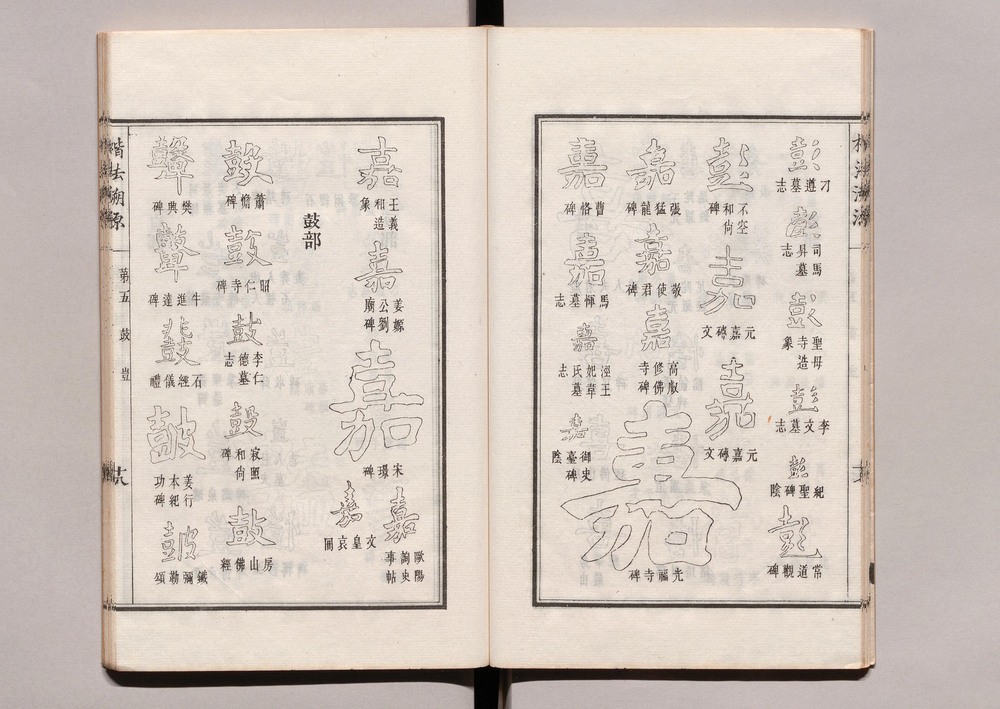 彭 刁遵墓志
彭 司馬昇墓志
彭 聖母寺造象
彭 李文墓志
彭 紀聖碑陰
彭 常道觀碑
彭 不空和尙碑
嘉 元嘉磚文
嘉 元嘉磚文
嘉 張猛龍碑
嘉 敬使君碑
嘉 高叡修佛寺碑
嘉 光福寺碑
嘉 曹恪碑
嘉 馬惲墓志
嘉 涇王妃韋氏墓志
嘉 御史臺碑陰
楷法溯源
嘉 王義和造象
嘉 姜嫄公劉廟碑
嘉 宋璟碑
嘉 歐陽詢史事帖
嘉 文皇哀冊
鼓部
鼓 蕭憺碑
鼓 昭仁寺碑
鼓 李仁德墓志
鼓 寂照和尙碑
鼓 房山佛經
鼙 樊興碑
鼙 牛進達碑
鼓 石經儀禮
鼓 姜行本紀功碑
鼓 鐵彌勒頌
楷法溯源
第五 鼓 豈